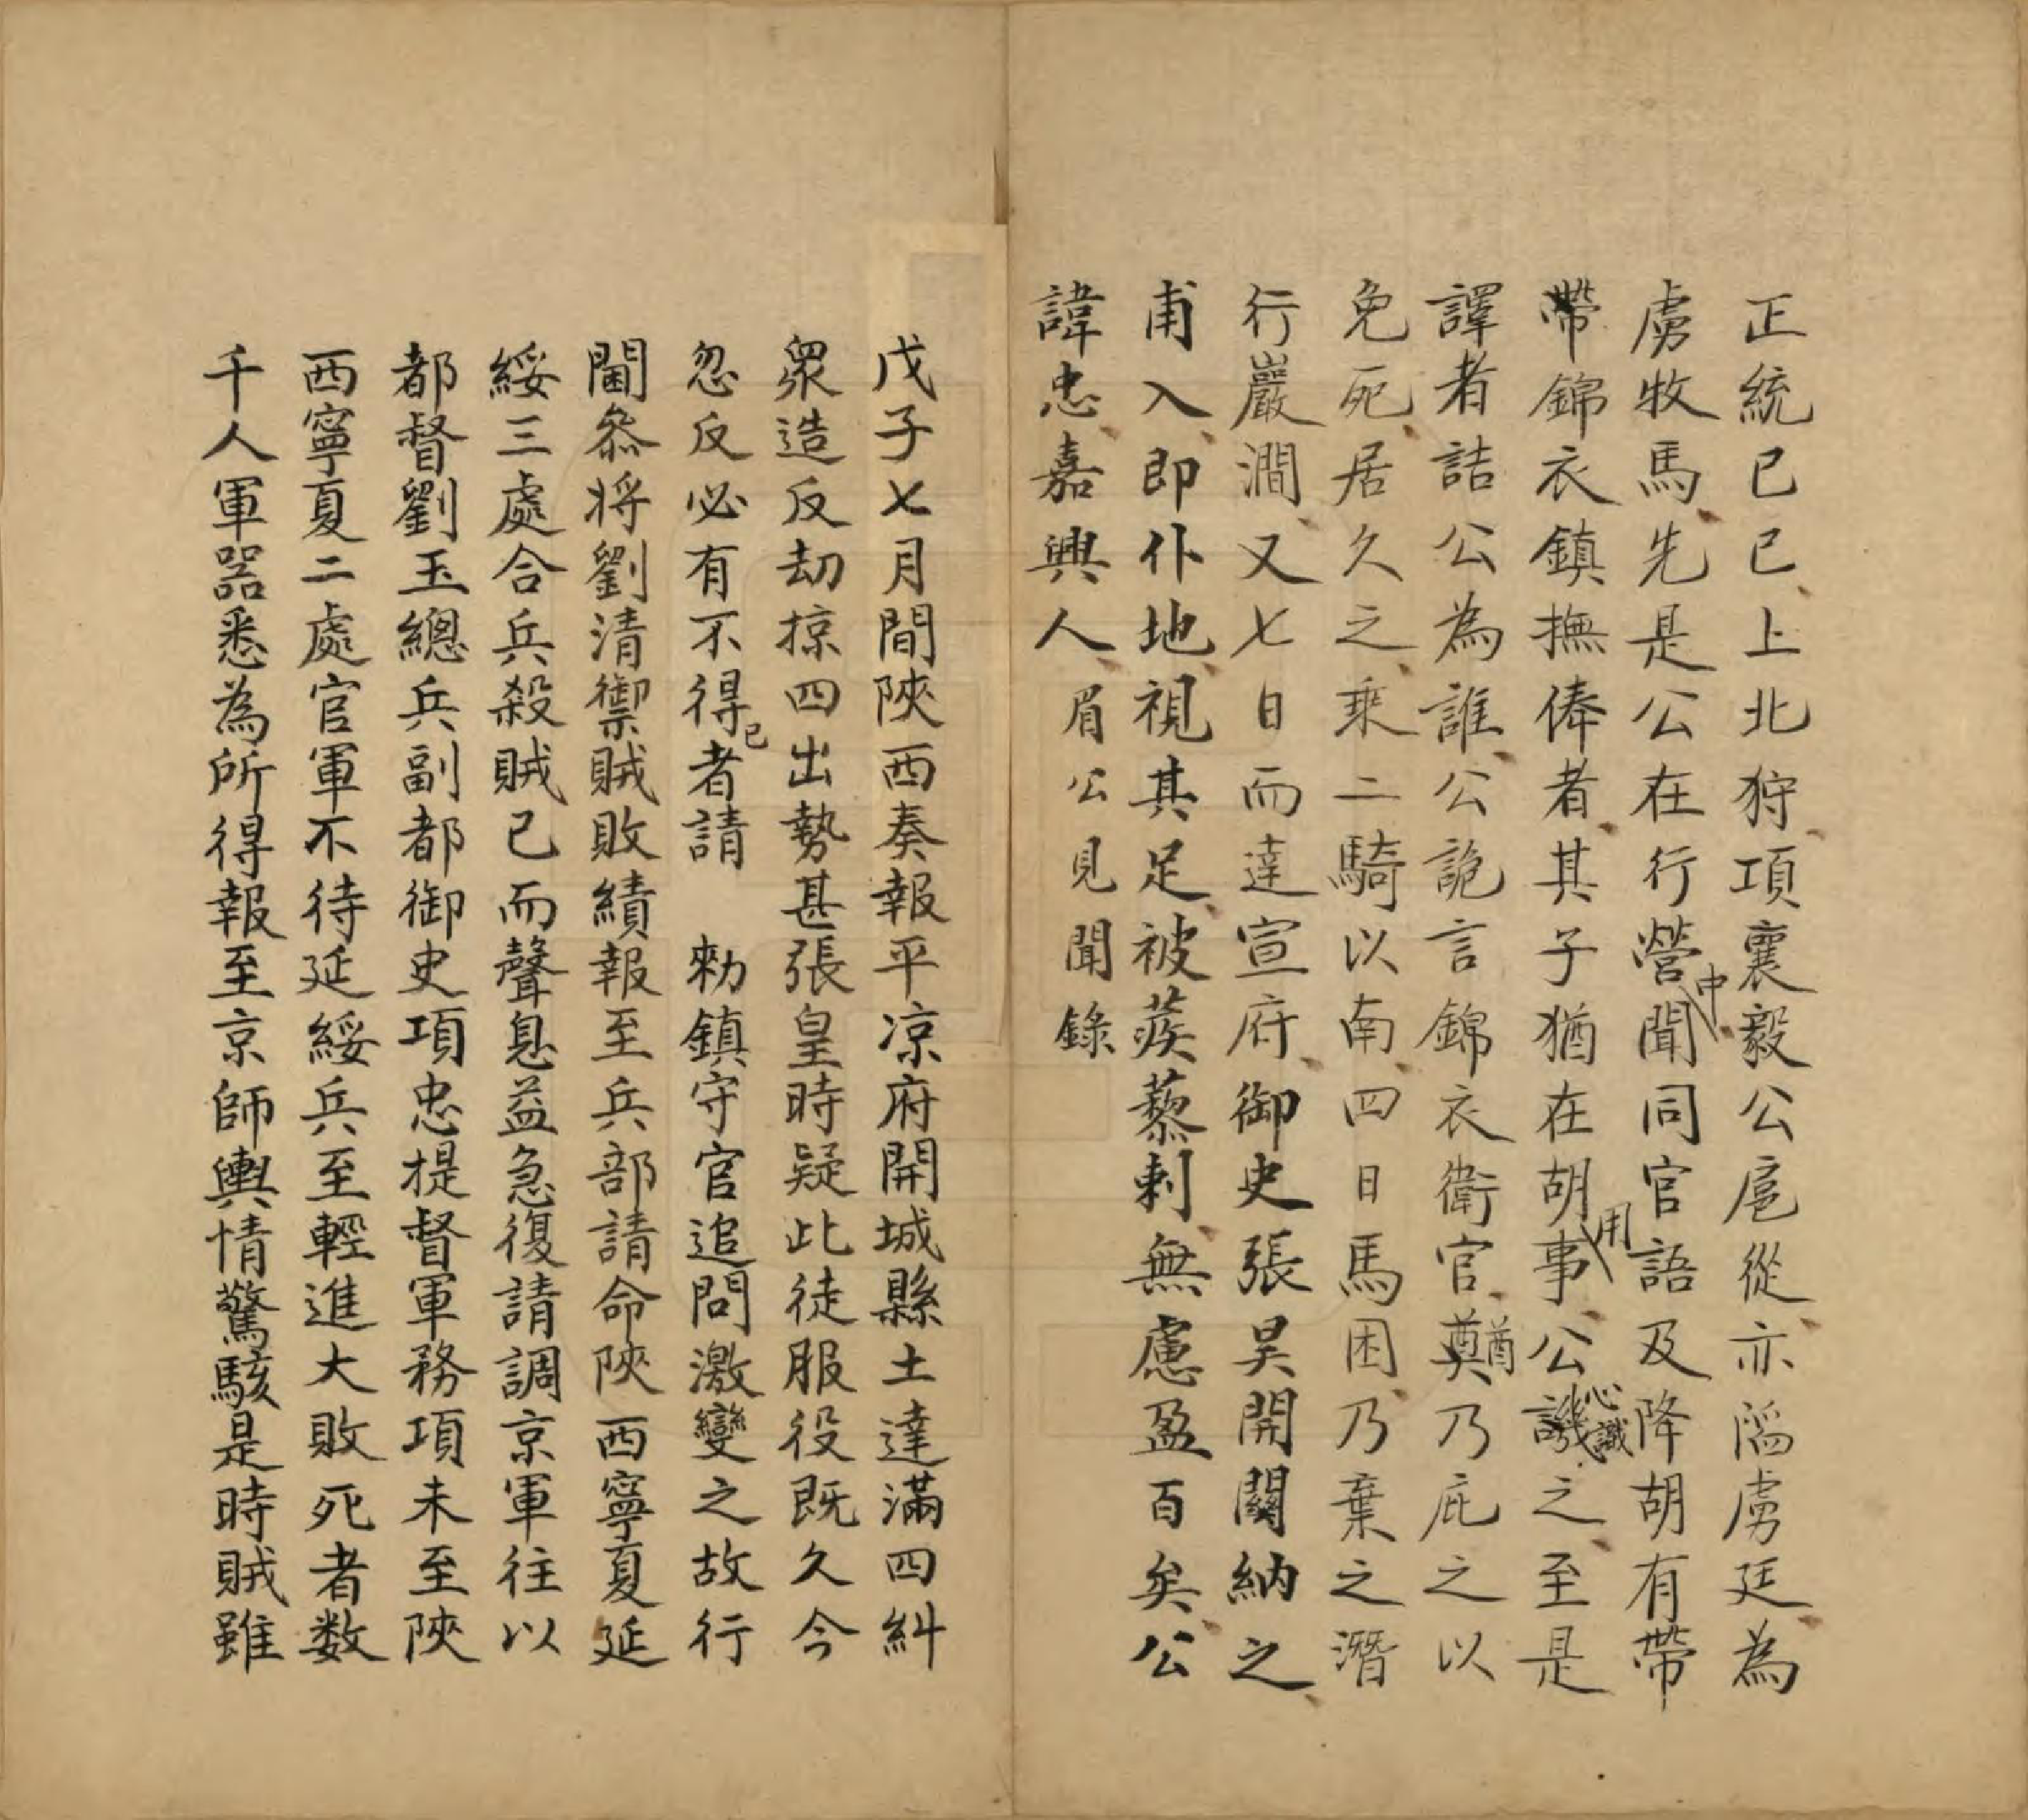 正統己巳上北狩項襄毅公扈從亦滔虜廷為
虜牧馬先是公在行營中聞同官語及降胡有帶
帶錦衣鎮撫俸者其子猶在胡用事公心識之至是
譯者詰公為誰公詭言錦衣衛官酋乃庇之以
免死居久之乘二騎以南四日馬困乃棄之潛
行巖澗又七日而達宣府御史張昊開關納之
甫入即仆地視其足被蒺藜刺無慮盈百矣公
諱忠嘉興人眉公見聞錄
戊子七月間陝西奏報平凉府開城縣土達滿四糾
衆造反劫掠四出勢甚張皇時疑此徒服役既久今
忽反必有不得已者請 勑鎮守官追問激變之故行
間叅将劉清禦賊敗績報至兵部請命陝西寧夏延
綏三處合兵殺賊已而聲息益急復請調京軍往以
都督劉玉總兵副都御史項忠提督軍務項未至陝
西寧夏二處官軍不待延綏兵至輕進大敗死者数
千人軍器悉為所得報至京師輿情驚駭是時賊雖